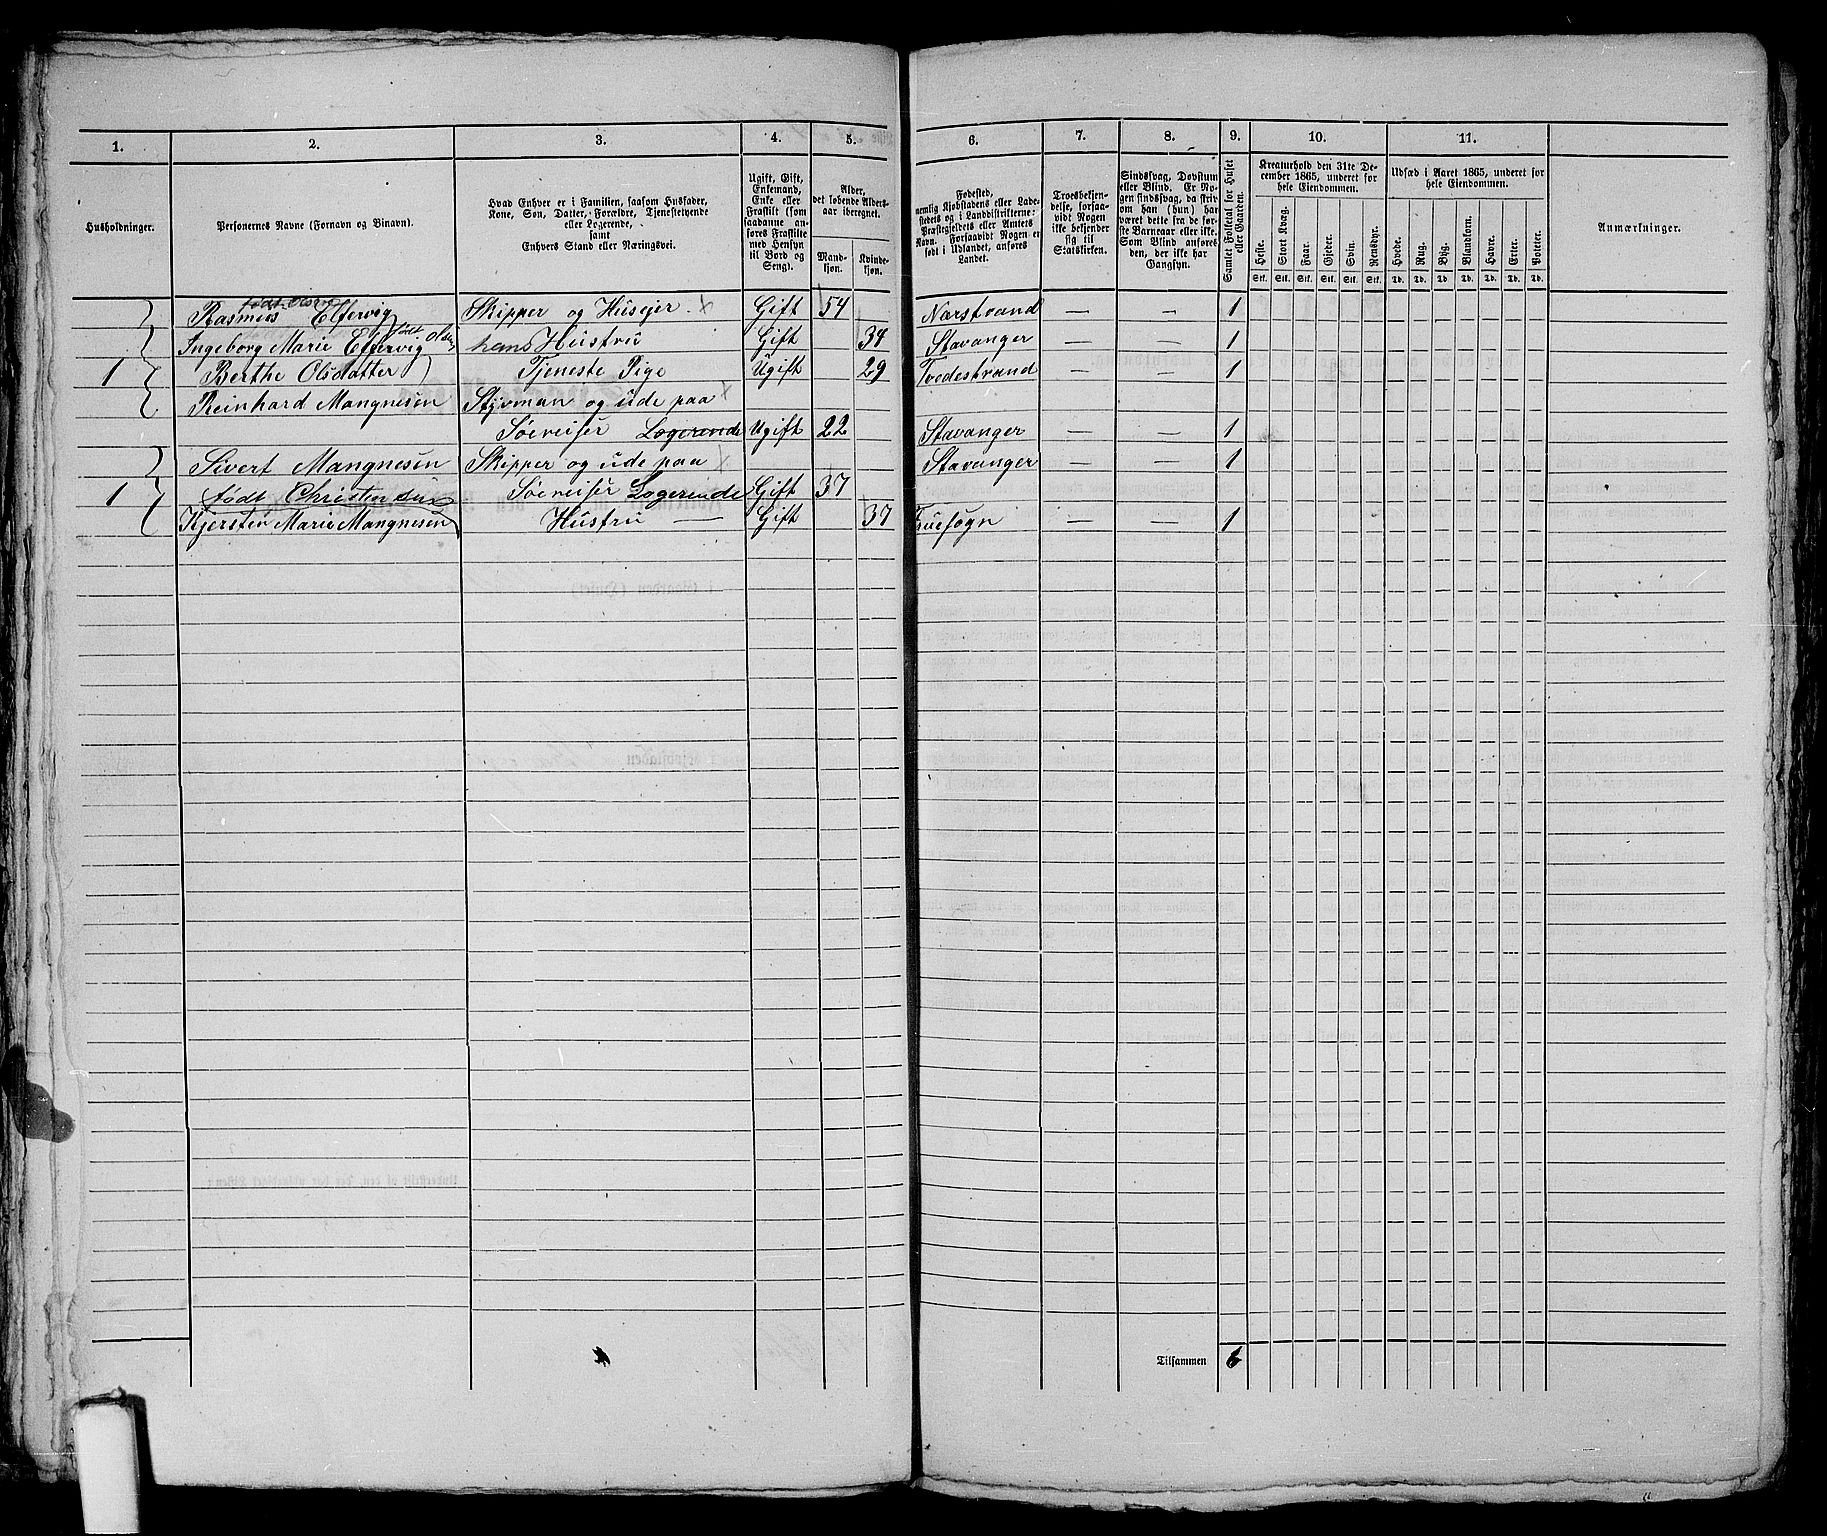 1. 2. 3. 4. 5. 6. 7. 8. 9. 10. 11.
Husholdninger.
Personernes Navne (Fornavn og Binavn).
Hvad Enhver er i Familien, saasom Husfader,
Kone, Søn, Datter, Forældre, Tjenestetyende
eller Logerende,
samt
Enhvers Stand eller Næringsvei.
Ugift, Gift,
Enkemand,
Enke eller
Fraskilt (som
saadanne an-
føres Fraskilte
med Hensyn
til Bord og
Seng).
Alder,
det løbende Alders-
aar iberegnet.
Mand-
kjøn.
Kvinde-
kjøn.
Fødested,
nemlig Kjøbstadens eller Lade-
stedets og i Landdistrikterne:
Præstegjeldets eller Amtets
Navn. Forsaavidt Nogen er
født i Udlandet, anføres
Landet.
Troesbekjen-
delse, forsaa-
vidt Nogen
ikke bekjender
sig til
Statskirken.
Sindssvag, Døvstum
eller Blind. Er No-
gen sindssvag, da skriv
om han (hun) har
været dette fra de før-
ste Barneaar eller ikke.
Som Blind anføres
den, der ikke har
Gangsyn.
Samlet Folketal for Huset
eller Gaarden.
Kreaturhold den 31te De-
cember 1865, underet for
hele Eiendommen.
Heste. Stort Kvæg. Faar. Gjeder. Svin. Rensdyr.
Stk. Stk. Stk. Stk. Stk. Stk.
Udsæd i Aaret 1865, underet for
hele Eiendommen.
Hvede. Rug. Byg. Blandkorn. Havre. Erter. Poteter.
Td. Td. Td. Td. Td. Td. Td.
Anmærkninger.
Rasmus Elfervig Skipper og Huseier x Gift 54 Narstrand — — 1
Ingeborg Marie Elfervig født Olsen hans Hustru Gift 34 Stavanger — — 1
1 Berthe Olsdatter Tjeneste Pige Ugift 29 Tvedestrand — — 1
Reinhard Mangnesen Styrman og ude paa x
Søereiser Logerende Ugift 22 Stavanger — — 1
Sivert Mangnesen Skipper og ude paa x Stavanger — — 1
1 født Christensen Søereiser Logerende Gift 37
Kjersten Marie Mangnesen Hustru — Gift 37 Fruesogn — — 1
Tilsammen 6